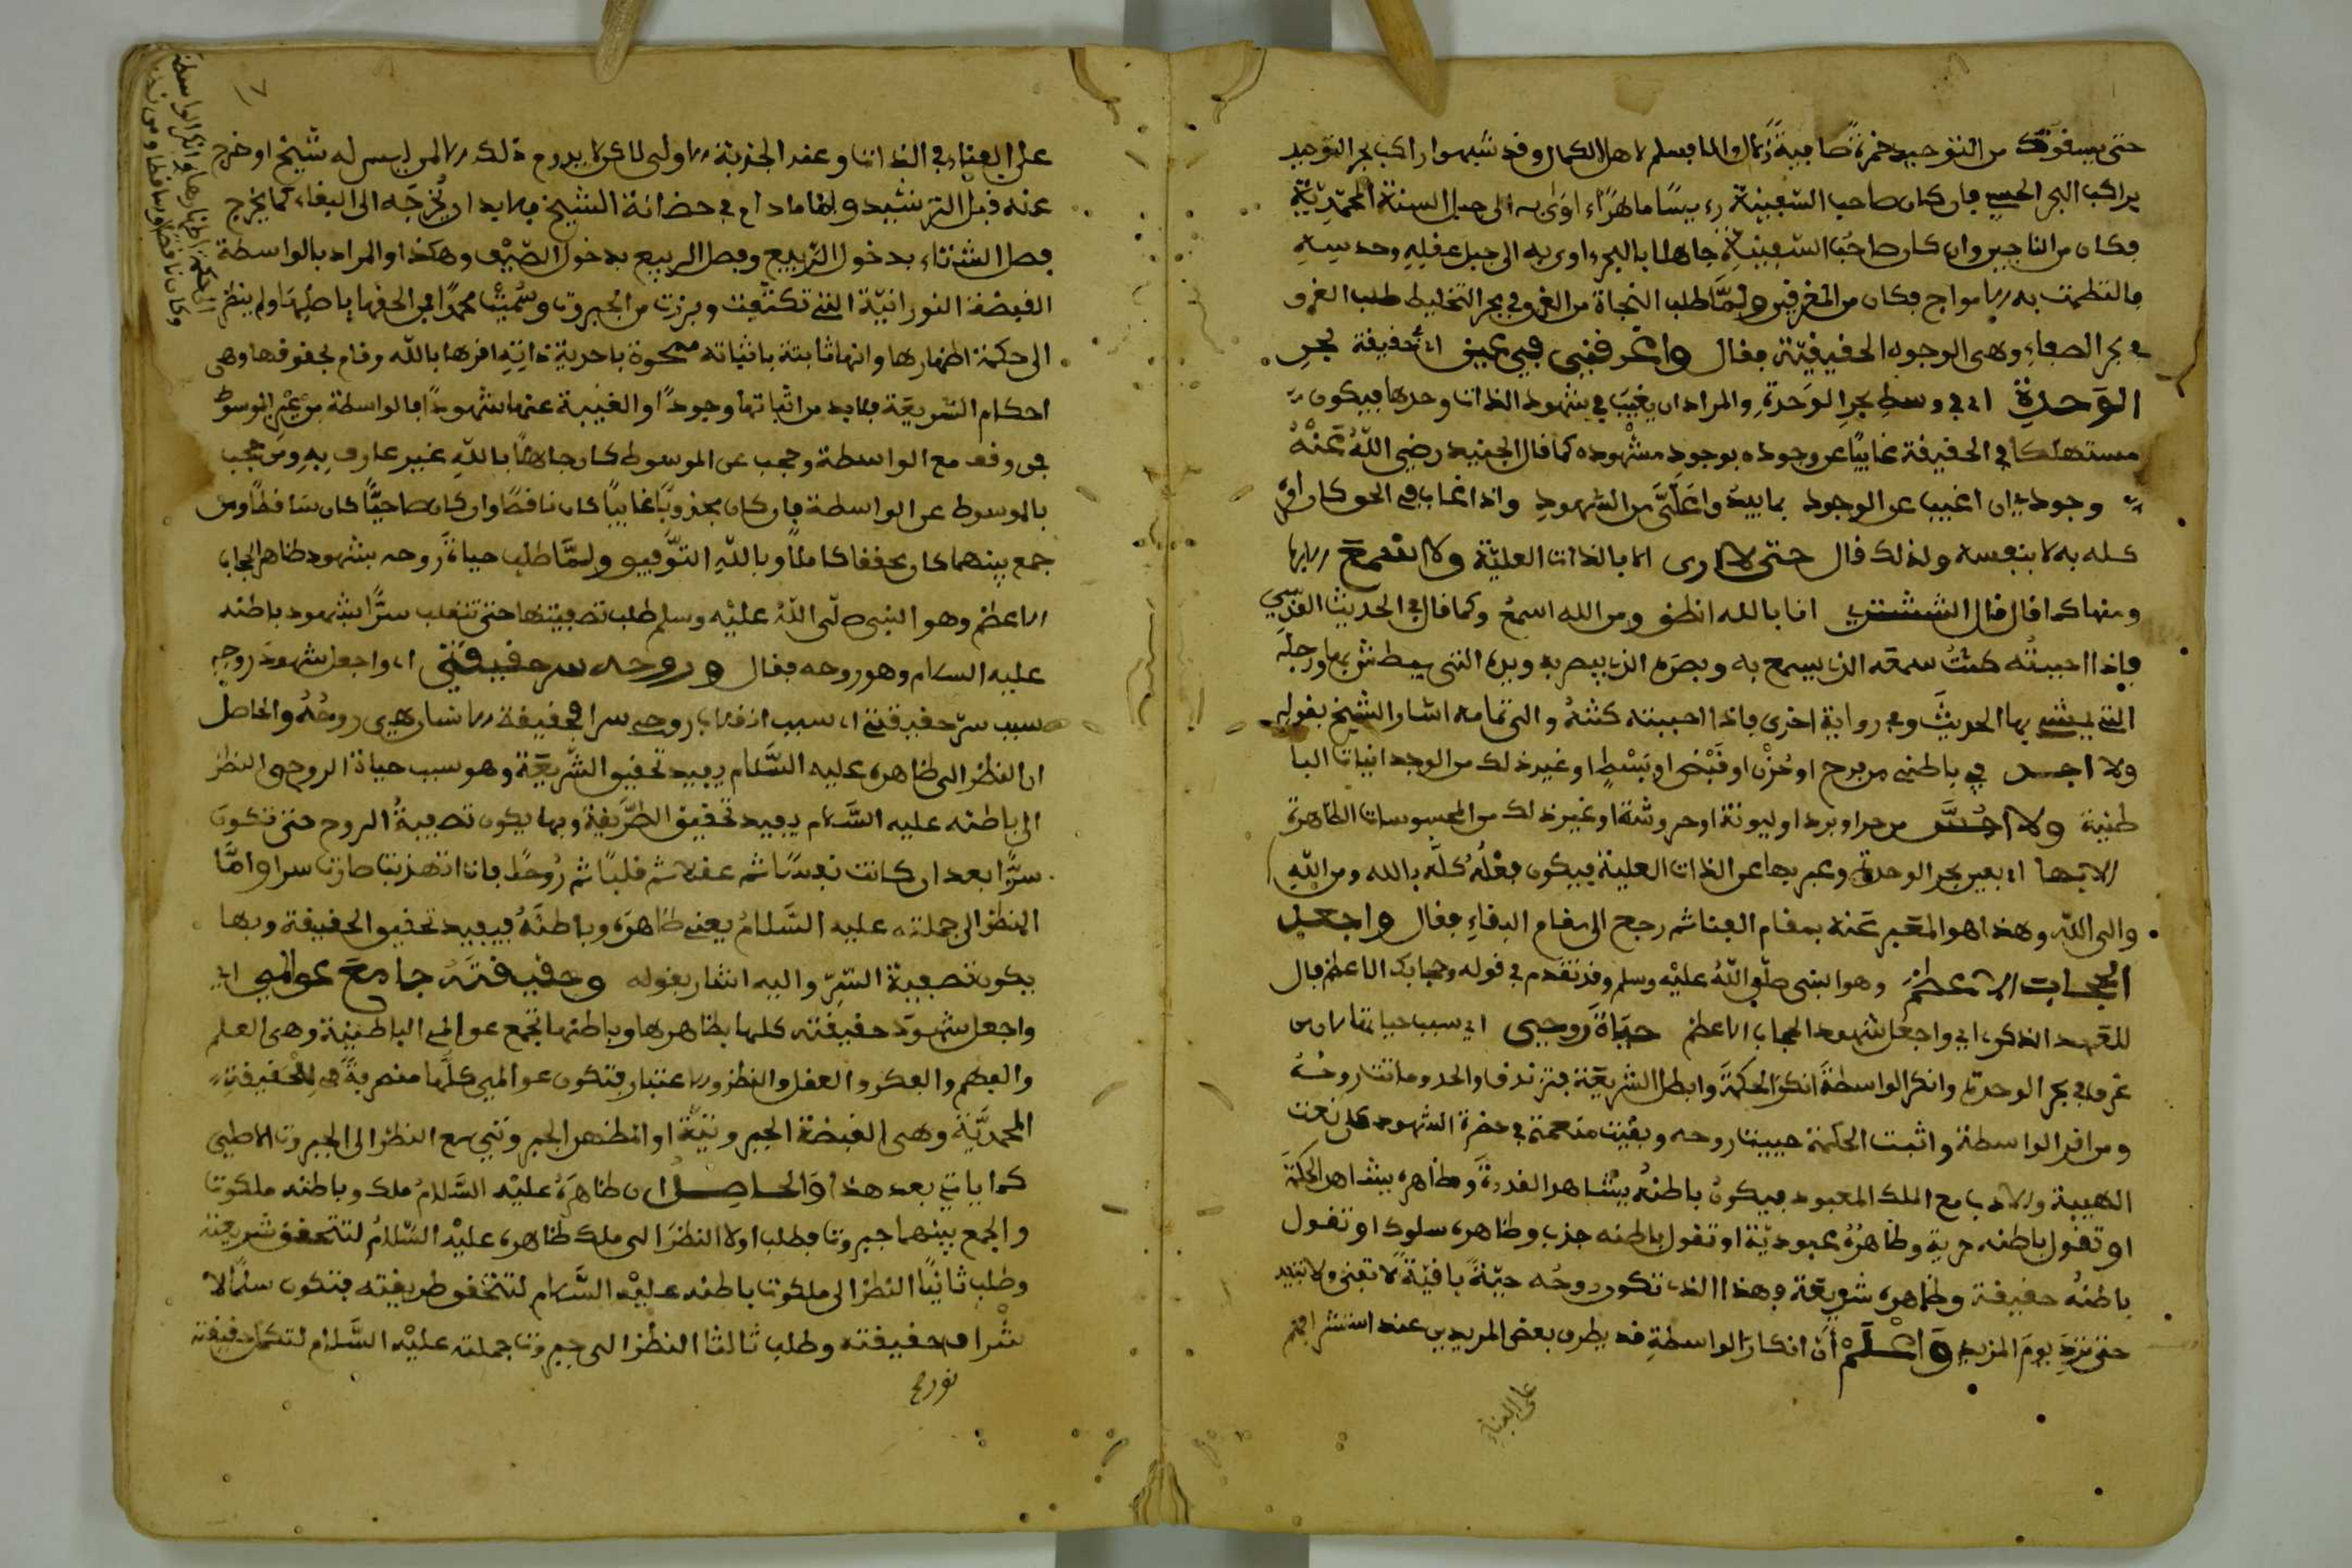 حتى يسقوك من التوحيد خمرة صافية زلالا والا فسلم لاهل الكمال وقد شبهوا راكب بحر التوحيد
براكب البحر الحسي فان كان صاحب السفينة رءيسا ماهرا اوى به الى جبل السنة المحمدية
فكان من الناجين وان كان صاحب السفينة جاهلا بالبحر اوى به الى جبل عقله وحدسه
فالتطمت به الامواج فكان من المغرقين ولما طلب النجاة من الغرق في بحر التخليط طلب الغرق
في بحر الصفاء وهى الوجود الحقيقية فقال واغرقني في عين اي حقيقة بحر
الوحدة اي في وسط بحر الوحدة والمراد ان يغيب في شهود الذات وحدها فيكون
مستهلكا في الحقيقة غايبا عن وجوده بوجود مشهوده كما قال الجنيد رضي الله عنه
وجودي ان اغيب عن الوجود بما يبدو علي من الشهود واذا غاب في الحق كان
كله به لا بنفسه ولذلك قال حتى لا ارى الا بالذات العلية ولا اسمع الا بها
ومنها كما قال الششتري انا بالله انطق ومن الله اسمع وكما قال في الحديث القدسي
فاذا احببته كنت سمعه الذي يسمع به وبصره الذي يبصر به ويده التي يبطش بها ورجله
التي يمشي بها الحديث وفي رواية اخرى فاذا احببته كنته والى تمامه اشار الشيخ بقوله
ولا اجد في باطني من فرح او حزن او قبض او بسط او غير ذلك من الوجدانيات البا
طنية ولا احس من حر او برد او ليونة او حروشة او غير ذلك من المحسوسات الظاهرة
الا بها اي بعين بحر الوحدة وعبر بها عن الذات العلية فيكون فعله كله بالله ومن الله
والى الله وهذا هو المعبر عنه بمقام الفنا ثم رجع الى مقام البقاء فقال واجعل
الحجاب الاعظم وهو النبي صلى الله عليه وسلم وقد تقدم في قوله وحجابك الاعظم فال
للعهد الذكري اي واجعل شهود الحجاب الاعظم حياة روحي اي سبب حياتها لان من
غرق في بحر الوحدة وانكر الواسطة انكر الحكمة وابطل الشريعة فتزندق والحد وماتت روحه
ومن اقر الواسطة واثبت الحكمة حييت روحه وبقيت منعمة في حضرة الشهود على نعت
الهيبة والادب مع الملك المعبود فيكون باطنه يشاهد القدرة وظاهره يشاهد الحكمة
او تقول باطنه حرية وظاهره عبودية او تقول باطنه جذب وظاهره سلوك او تقول
باطنه حقيقة وظاهره شريعة وهذا الذي تكون روحه حية باقية لا تفنى ولا تبيد
حتى ترد يوم المزيد واعلم ان انكار الواسطة قد يطرق بعض المريدين عند استشرافهم
على الفناء
١٧
على الفناء في الذات وعند الجذبة الاولى لاكن لا يدوم ذلك الا لمن ليس له شيخ او خرج
عنه قبل الترشيد واما ما دام في حضانة الشيخ فلا بد ان يخرجه الى البقاء كما يخرج
فصل الشتاء بدخول الربيع وفصل الربيع بدخول الصيف وهكذا والمراد بالواسطة
القبضة النورانية التي تكثفت وبرزت من الجبروت وسميت محمدا فمن الحقها باصلها ولم ينظر
الى حكمة اظهارها وانها ثابتة باثباته ممحوة باحدية ذاته اقرها بالله وقام بحقوقها وهى
احكام الشريعة فلا بد من اثباتها وجودا والغيبة عنها شهودا فالواسطة من عين الموسوط
فمن وقف مع الواسطة وحجب عن الموسوط كان جاهلا بالله غير عارف به ومن حجب
بالموسوط عن الواسطة فان كان مجذوبا غايبا كان ناقصا وان كان صاحيا كان ساقطا ومن
جمع بينهما كان محققا كاملا وبالله التوفيق ولما طلب حياة روحه بشهود ظاهر الحجاب
الاعظم وهو النبي صلى الله عليه وسلم طلب تصفيتها حتى تنقلب سرا بشهود باطنه
عليه السلام وهو روحه فقال وروحه سر حقيقتي اي واجعل شهود روحه
سبب سر حقيقتي اي سبب انقلاب روحي سرا فحقيقة الانسان هي روحه والحاصل
ان النظر الى ظاهره عليه السلام يفيد تحقيق الشريعة وهو سبب حياة الروح والنظر
الى باطنه عليه السلام يفيد تحقيق الطريقة وبها يكون تصفية الروح حتى تكون
سرا بعد ان كانت نفسا ثم عقلا ثم قلبا ثم روحا فاذا تهذبت صارت سرا واما
النظر الى جملته عليه السلام يعني ظاهره وباطنه فيفيد تحقيق الحقيقة وبها
يكون تصفية السر واليه اشار بقوله وحقيقته جامع عوالمي اي
واجعل شهود حقيقته كلها بظاهرها وباطنها تجمع عوالمي الباطنية وهى العلم
والفهم والفكر والعقل والنظر والاعتبار فتكون عوالمي كلها منصرفة في الحقيقة
المحمدية وهى القبضة الجبروتية او المظهر الجبروتي مع النظر الى الجبروت الاصلي
كما ياتي بعد هذا والحاصل ان ظاهره عليه السلام ملك وباطنه ملكوت
والجمع بينهما جبروت فطلب اولا النظر الى ملك ظاهره عليه السلام لتتحقق شريعته
وطلب ثانيا النظر الى ملكوت باطنه عليه السلام لتتحقق طريقته فتكون سلما لا
شراف حقيقته وطلب ثالثا النظر الى جبروت جملته عليه السلام لتكمل حقيقته